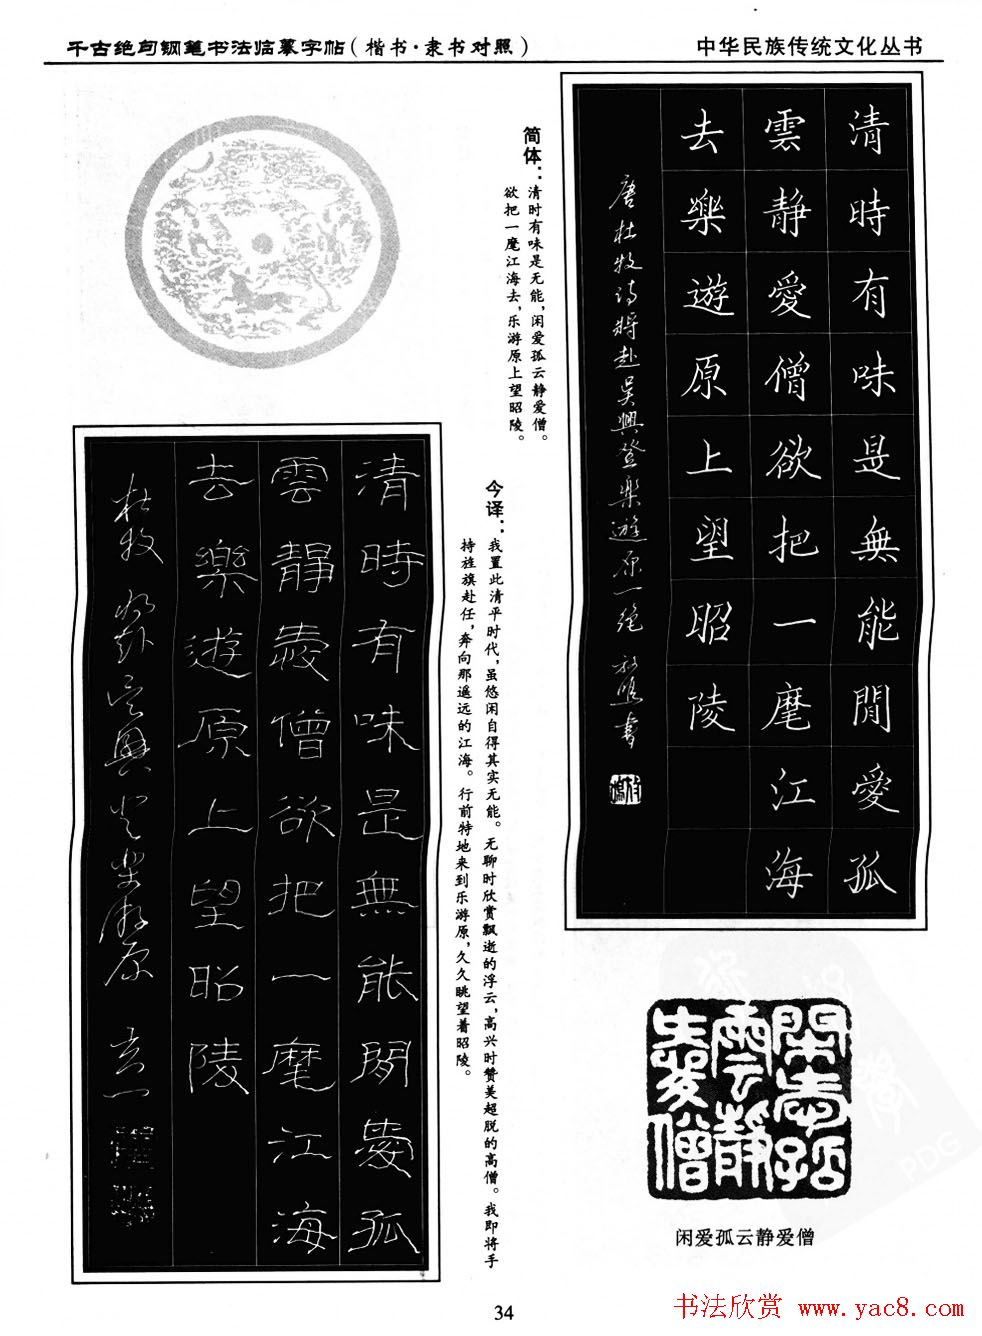 千古绝句钢笔书法临摹字帖(楷书·隶书对照)
中华民族传统文化丛书
清時有味是無能閒愛孤
雲靜愛僧欲把一麾江海
去樂遊原上望昭陵
唐杜牧诗將赴吴興登樂遊原一绝
简体：清时有味是无能,闲爱孤云静爱僧。
欲把一麾江海去,乐游原上望昭陵。
今译：我置此清平时代,虽悠闲自得其实无能。无聊时欣赏飘逝的浮云,高兴时赞美超脱的高僧。我即将手
持旌旗赴任,奔向那遥远的江海。行前特地来到乐游原,久久眺望着昭陵。
清時有味是無能閒愛孤
雲靜愛僧欲把一麾江海
去樂遊原上望昭陵
杜牧 將赴吴興登樂游原
閑愛孤
雲靜
愛僧
闲爱孤云静爱僧
34
书法欣赏 www.yac8.com
PDG